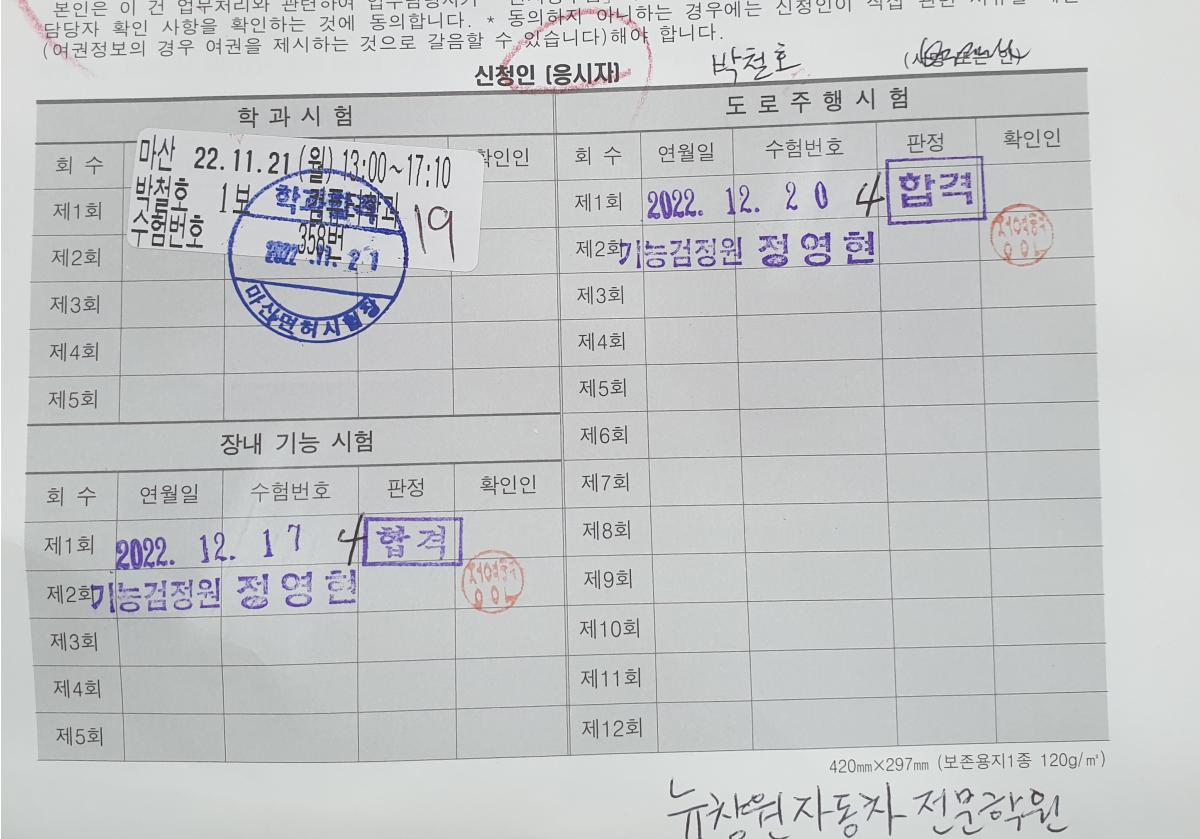 본인은 이 건 업무처리와 관련하여
담당자 확인 사항을 확인하는 것에 동의합니다. * 동의하지 아니하는 경우에는 신청인이 직접 관련
(여권정보의 경우 여권을 제시하는 것으로 갈음할 수 있습니다)해야 합니다.
신청인 (응시자) 박철호
학 과 시 험
회 수 확인인
마산 22.11.21(월) 13:00~17:10
박철호 1보
수험번호 358번
19
2022. 11. 21
마산면허시험장
제1회
제2회
제3회
제4회
제5회
장내 기능 시험
회 수 연월일 수험번호 판정 확인인
제1회 2022. 12. 17 4 합격
제2회 기능검정원 정영현
제3회
제4회
제5회
도 로 주 행 시 험
회 수 연월일 수험번호 판정 확인인
제1회 2022. 12. 20 4 합격
제2회 기능검정원 정영현
제3회
제4회
제5회
제6회
제7회
제8회
제9회
제10회
제11회
제12회
420㎜×297㎜ (보존용지1종 120g/㎡)
뉴창원자동차전문학원